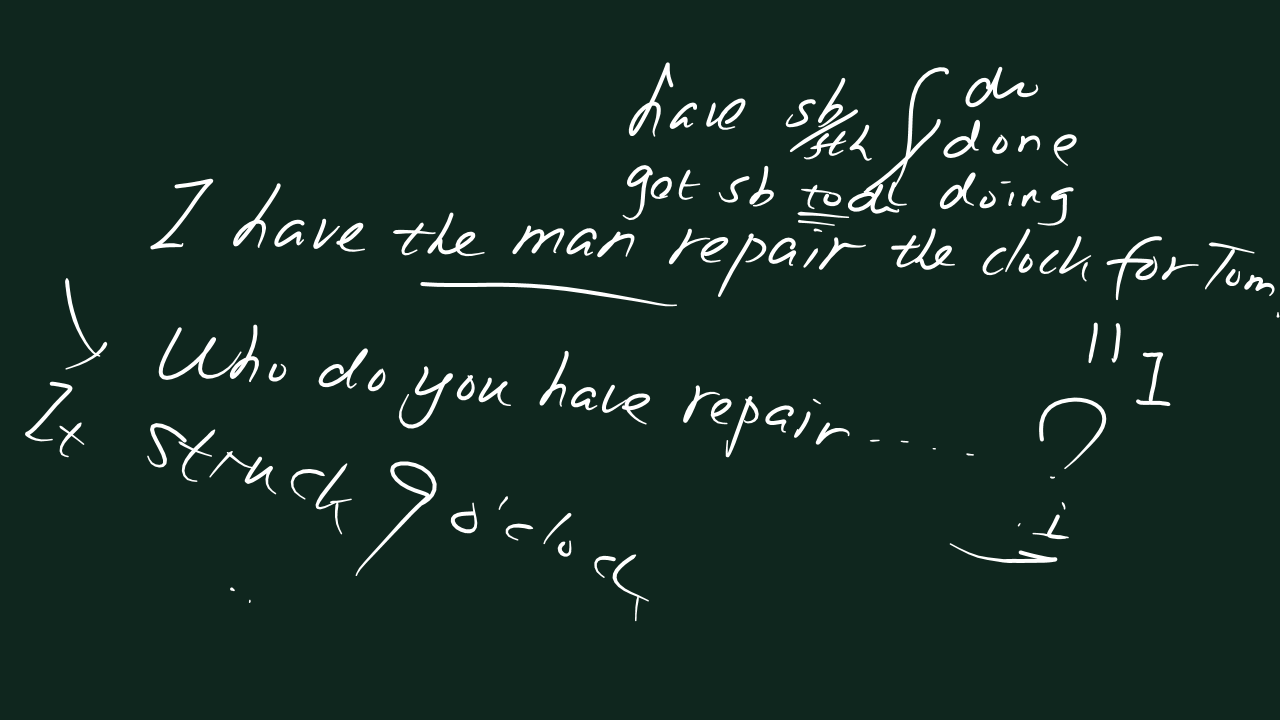 have sb/sth { do
done
get sb to do doing
I have the man repair the clock for Tom.
" I
Who do you have repair.... ?
It struck 9 o'clock